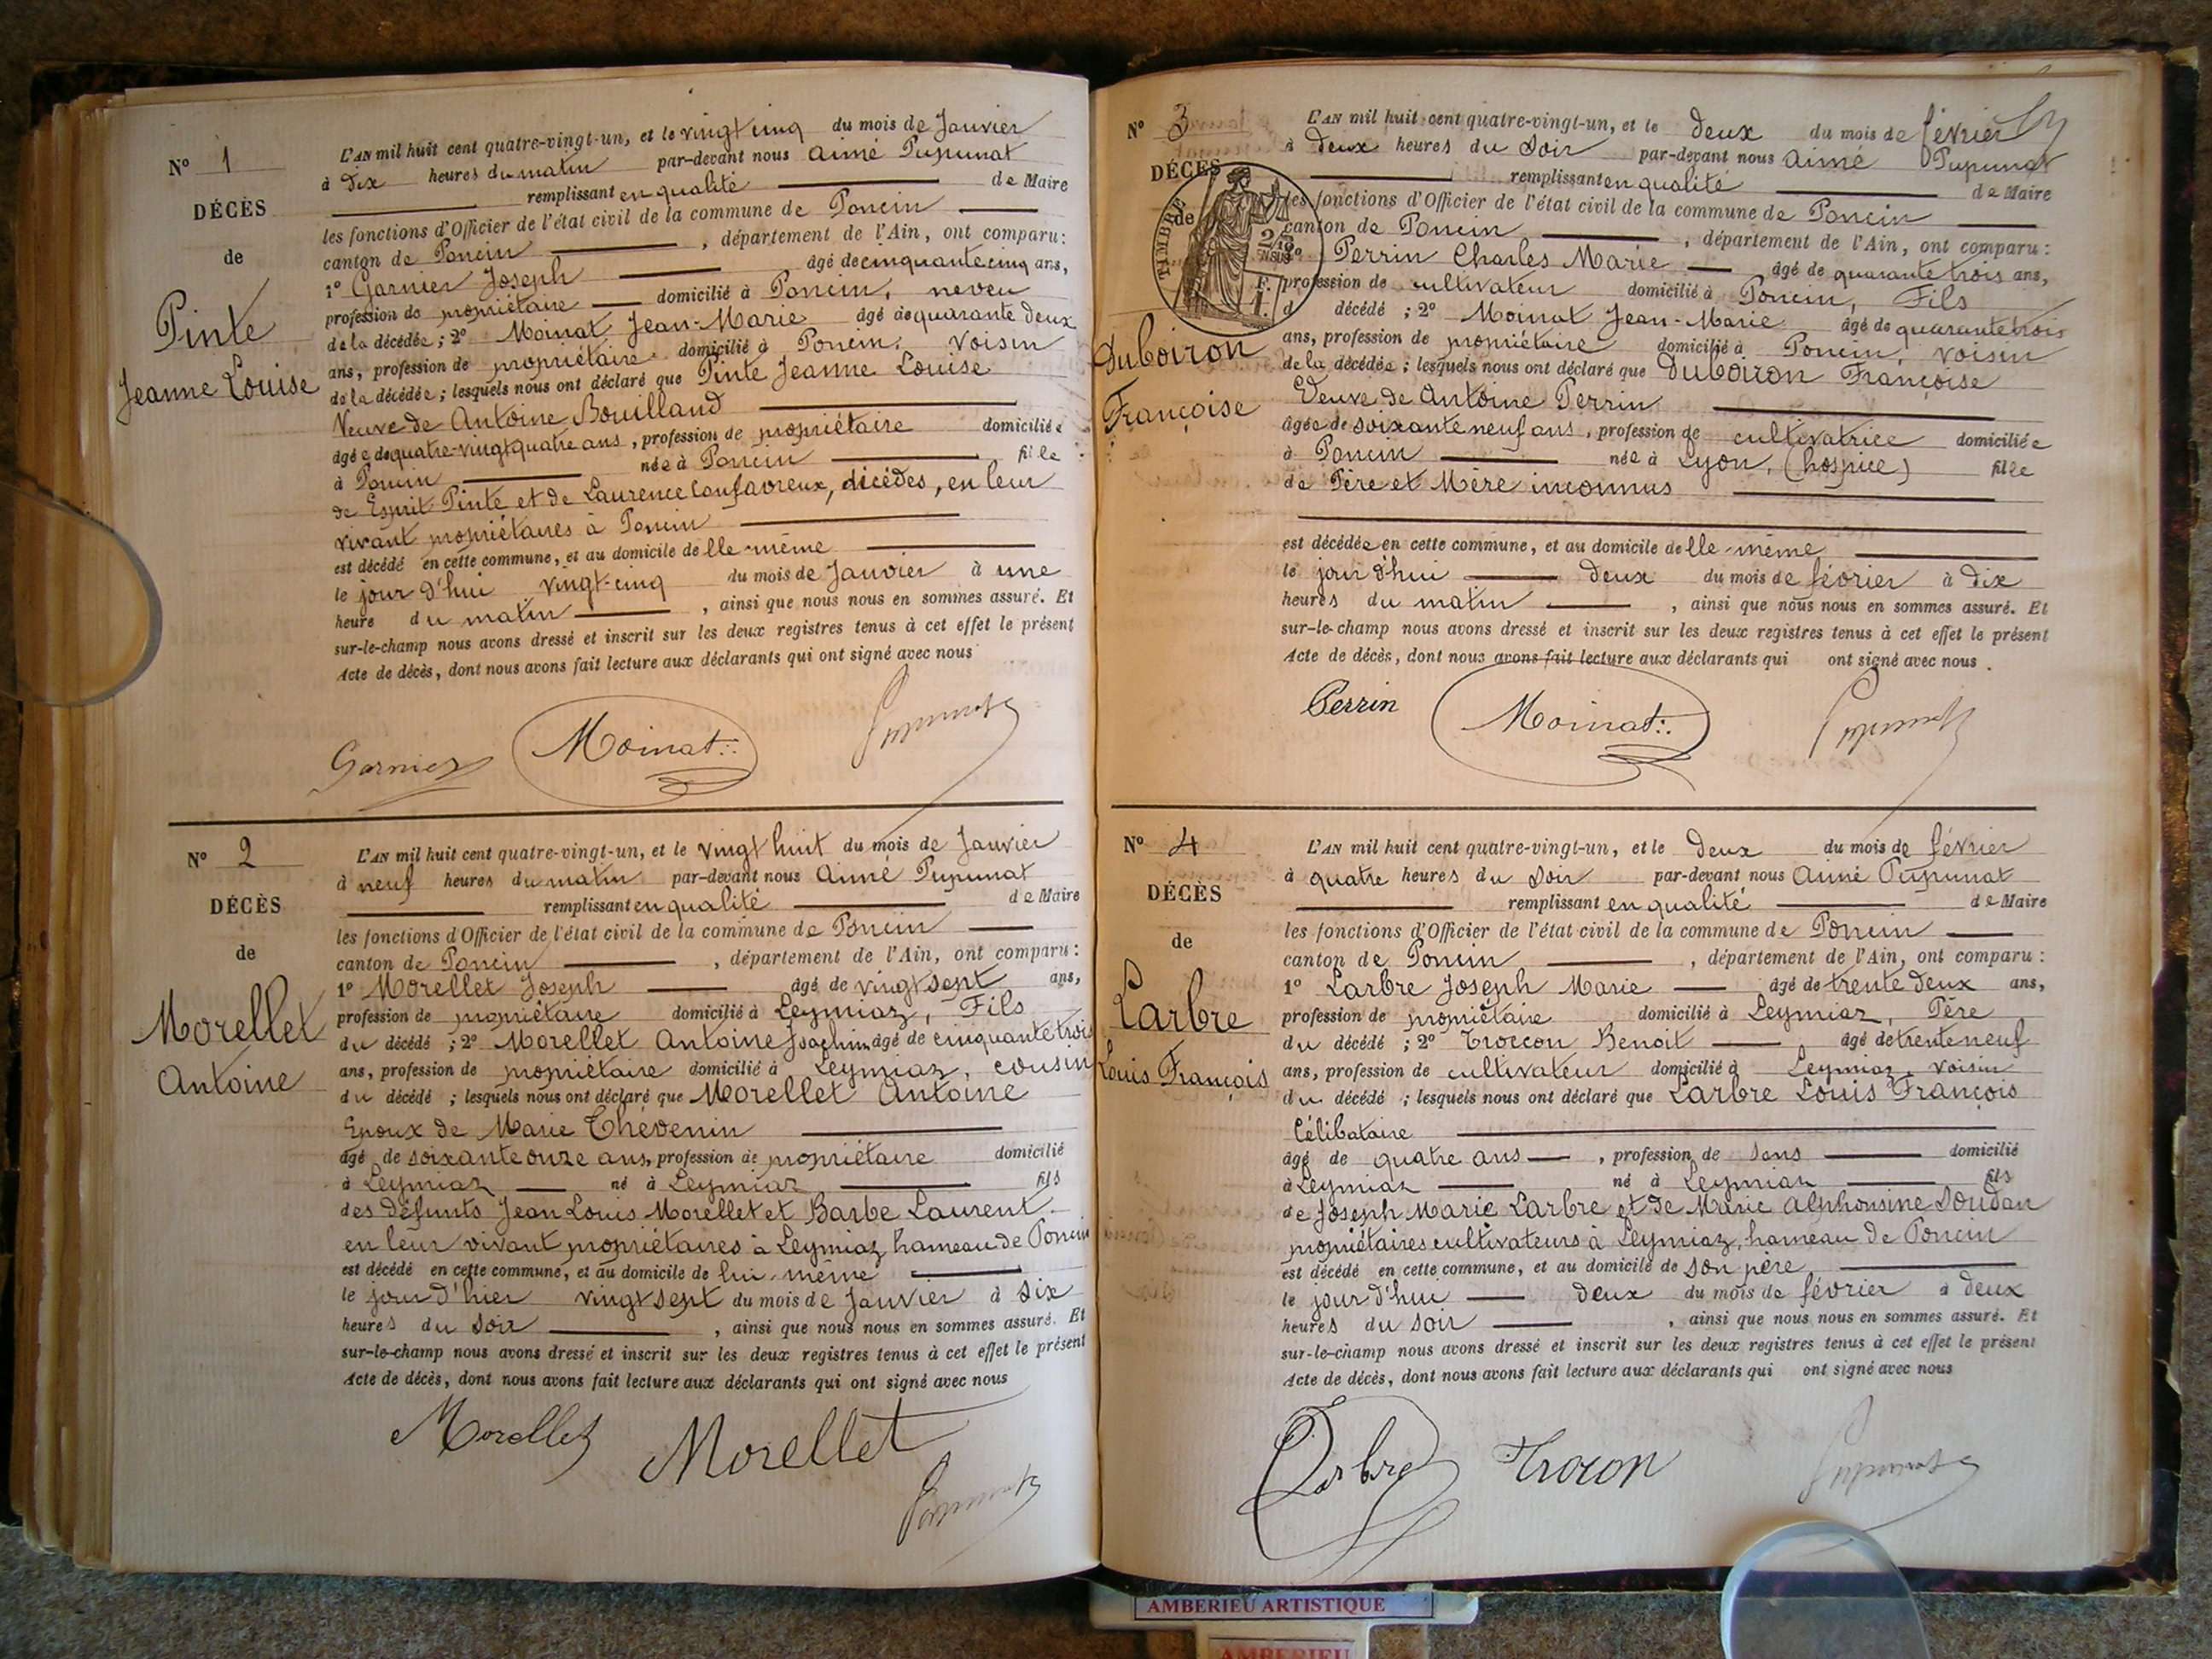 N° 1
DÉCÈS
de
Pinte
Jeanne Louise
L'AN mil huit cent quatre-vingt-un, et le vingt cinq du mois de Janvier
à dix heures du matin par-devant nous Aimé Pupunat
remplissant en qualité de Maire
les fonctions d'Officier de l'état civil de la commune de Poncin
canton de Poncin , département de l'Ain, ont comparu:
1° Garnier Joseph âgé de cinquante cinq ans,
profession de propriétaire domicilié à Poncin, neveu
de la décédée ; 2° Moinat Jean-Marie âgé de quarante deux
ans, profession de propriétaire domicilié à Poncin, Voisin
de la décédée ; lesquels nous ont déclaré que Pinte Jeanne Louise
Veuve de Antoine Bouilland
âgée de quatre-vingt quatre ans, profession de propriétaire domiciliée
à Poncin née à Poncin fille
de Esprit Pinte et de Laurence Confavreux, décédés, en leur
vivant propriétaires à Poncin
est décédé en cette commune, et au domicile de lle-même
le jour d'hui vingt-cinq du mois de Janvier à une
heure du matin , ainsi que nous nous en sommes assuré. Et
sur-le-champ nous avons dressé et inscrit sur les deux registres tenus à cet effet le présent
Acte de décès, dont nous avons fait lecture aux déclarants qui ont signé avec nous
Garnier Moinat Pupunat
N° 2
DÉCÈS
de
Morellet
Antoine
L'AN mil huit cent quatre-vingt-un, et le vingt huit du mois de Janvier
à neuf heures du matin par-devant nous Aimé Pupunat
remplissant en qualité de Maire
les fonctions d'Officier de l'état civil de la commune de Poncin
canton de Poncin , département de l'Ain, ont comparu :
1° Morellet Joseph âgé de vingt sept ans,
profession de propriétaire domicilié à Leymiaz, Fils
du décédé ; 2° Morellet Antoine Joachim âgé de cinquante trois
ans, profession de propriétaire domicilié à Leymiaz, cousin
du décédé ; lesquels nous ont déclaré que Morellet Antoine
Epoux de Marie Thévenin
âgé de soixante onze ans, profession de propriétaire domicilié
à Leymiaz né à Leymiaz fils
des défunts Jean Louis Morellet et Barbe Laurent
en leur vivant propriétaires à Leymiaz hameau de Poncin
est décédé en cette commune, et au domicile de lui-même
le jour d'hier vingt sept du mois de Janvier à six
heures du soir , ainsi que nous nous en sommes assuré. Et
sur-le-champ nous avons dressé et inscrit sur les deux registres tenus à cet effet le présent
Acte de décès, dont nous avons fait lecture aux déclarants qui ont signé avec nous
Morellet Morellet
Pupunat
N° 3
DÉCÈS
de
TIMBRE
Duboiron
Françoise
L'AN mil huit cent quatre-vingt-un, et le deux du mois de février
à deux heures du soir par-devant nous Aimé Pupunat
remplissant en qualité de Maire
les fonctions d'Officier de l'état civil de la commune de Poncin
canton de Poncin , département de l'Ain, ont comparu :
Perrin Charles Marie âgé de quarante trois ans,
profession de cultivateur domicilié à Poncin, Fils
d décédé ; 2° Moinat Jean-Marie âgé de quarante trois
ans, profession de propriétaire domicilié à Poncin, voisin
de la décédée ; lesquels nous ont déclaré que Duboiron Françoise
Veuve de Antoine Perrin
âgée de soixante neuf ans, profession de cultivatrice domiciliée
à Poncin née à Lyon, (hospice) fille
de Père et Mère inconnus
est décédée en cette commune, et au domicile de lle-même
le jour d'hui deux du mois de février à dix
heures du matin , ainsi que nous nous en sommes assuré. Et
sur-le-champ nous avons dressé et inscrit sur les deux registres tenus à cet effet le présent
Acte de décès, dont nous avons fait lecture aux déclarants qui ont signé avec nous.
Perrin Moinat Pupunat
N° 4
DÉCÈS
de
Larbre
Louis François
L'AN mil huit cent quatre-vingt-un, et le deux du mois de février
à quatre heures du soir par-devant nous Aimé Pupunat
remplissant en qualité de Maire
les fonctions d'Officier de l'état civil de la commune de Poncin
canton de Poncin , département de l'Ain, ont comparu :
1° Larbre Joseph Marie âgé de trente deux ans,
profession de propriétaire domicilié à Leymiaz, Père
du décédé ; 2° Troccon Benoit âgé de trente neuf
ans, profession de cultivateur domicilié à Leymiaz, Voisin
du décédé ; lesquels nous ont déclaré que Larbre Louis François
Célibataire
âgé de quatre ans , profession de sans domicilié
à Leymiaz né à Leymiaz fils
de Joseph Marie Larbre et de Marie Alphonsine Soudan
propriétaires cultivateurs à Leymiaz, hameau de Poncin
est décédé en cette commune, et au domicile de son père
le jour d'hui deux du mois de février à deux
heures du soir , ainsi que nous nous en sommes assuré. Et
sur-le-champ nous avons dressé et inscrit sur les deux registres tenus à cet effet le présent
Acte de décès, dont nous avons fait lecture aux déclarants qui ont signé avec nous
Larbre Trocon Pupunat
AMBERIEU ARTISTIQUE
AMBERIEU